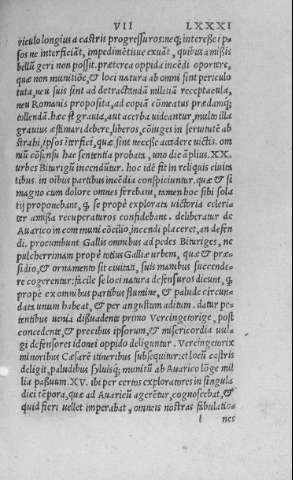 VII LXXXI
riculo longius a castris progressuros: neq; interesse ipsos
ne interficiāt, impedimētisue exuāt, quibus amissis
bellū geri non possit. præterea oppida incēdi oportere,
quæ non munitiōe, & loci natura ab omni sint periculo
tuta, neu suis sint ad detractādā militiā receptacula,
neu Romanis proposita, ad copiā cōmeatus prædamq;
tollendā. hæc si grauia, aut acerba uideantur, multo illa
grauius æstimari debere, liberos, cōiuges in seruitutē abstrahi,
ipsos īterfici, quæ sint necesse accidere uictis. omniū
cōsensu hac sententia probata, uno die āplius. XX.
urbes Biturigū incendūtur. hoc idē fit in reliquis ciuitatibus.
in oībus partibus incēdia conspiciuntur. quæ & si
magno cum dolore omnes ferebant, tamen hoc sibi solatij
proponebant, q̧ se prope explorata uictoria celeriter
amissa recuperaturos confidebant. deliberatur de
Auarico in communi cōcilio, incendi placeret, an defendi.
procumbunt Gallis omnibus ad pedes Bituriges, ne
pulcherrimam prope totius Galliæ urbem, quæ & præsidio,
& ornamento sit ciuitati, suis manibus succendere
cogerentur: facile se loci natura defensuros dicunt, q̧
prope ex omnibus partibus flumine, & palude circundata
unum habeat, & per angustum aditum. datur petentibus
uenia, dissuadente primo Vercingetorige, post
concedente, & precibus ipsorum, & misericordia uulgi
defensores idonei oppido deliguntur. Vercingetorix
minoribus Cæsarē itineribus subsequitur: et locū castris
deligit, paludibus syluisq; munitū ab Auarico lōge millia
passuum XV. ibi per certos exploratores in singula
diei tēpora, quæ ad Auaricū agerētur, cognoscebat, &
quid fieri uellet imperabat, omneis nostras pabulatio
l nes